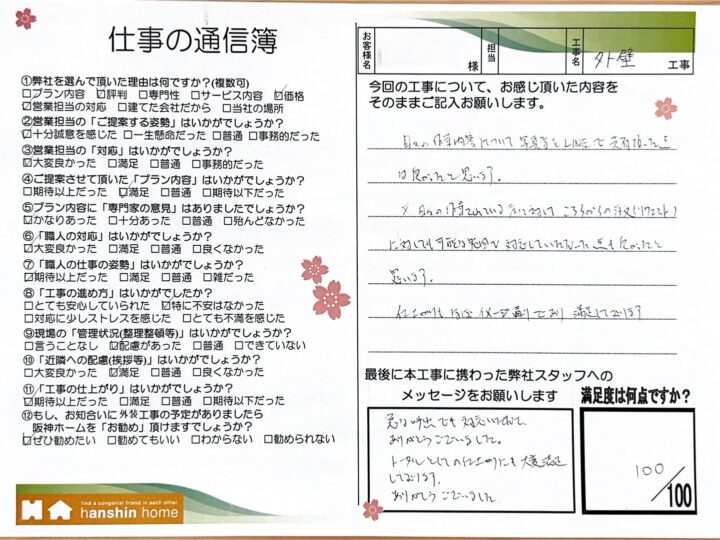 仕事の通信簿
①弊社を選んで頂いた理由は何ですか?(複数可)
□プラン内容 ☑評判 □専門性 □サービス内容 ☑価格
☑営業担当の対応 □建てた会社だから □当社の場所
②営業担当の「ご提案する姿勢」はいかがでしょうか?
☑十分誠意を感じた □一生懸命だった □普通 □事務的だった
③営業担当の「対応」はいかがでしょうか?
☑大変良かった □満足 □普通 □事務的だった
④ご提案させて頂いた「プラン内容」はいかがでしょうか?
□期待以上だった ☑満足 □普通 □期待以下だった
⑤プラン内容に「専門家の意見」はありましたでしょうか?
☑かなりあった □十分あった □普通 □殆んどなかった
⑥「職人の対応」はいかがでしょうか?
☑大変良かった □満足 □普通 □良くなかった
⑦「職人の仕事の姿勢」はいかがでしょうか?
☑期待以上だった □満足 □普通 □雑だった
⑧「工事の進め方」はいかがでしたか?
□とても安心していられた ☑特に不安はなかった
□対応に少しストレスを感じた □とても不満を感じた
⑨現場の「管理状況(整理整頓等)」はいかがでしょうか?
□言うことなし ☑配慮があった □普通 □できていない
⑩「近隣への配慮(挨拶等)」はいかがでしょうか?
□大変良かった ☑満足 □普通 □良くなかった
⑪「工事の仕上がり」はいかがでしょうか?
☑期待以上だった □満足 □普通 □期待以下だった
⑫もし、お知合いに外装工事の予定がありましたら
阪神ホームを「お勧め」頂けますでしょうか?
☑ぜひ勧めたい □勧めてもいい □わからない □勧められない
find a congenial friend in each other.
hanshin home
お客様名 様 担当 工事名 外壁 工事
今回の工事について、お感じ頂いた内容を
そのままご記入お願いします。
日々の作業内容について写真等をLINEで共有頂いた点
は良かったと思います。
に対しても可能な範囲で対応していただいた点も良かったと
思います。
仕上がりもほぼイメージ通りであり満足しております
最後に本工事に携わった弊社スタッフへの
メッセージをお願いします
急な呼出でも対応いただいて
ありがとうございました。
トータルとしての仕上がりにも大変満足
しております。
ありがとうございました。
満足度は何点ですか?
100/100